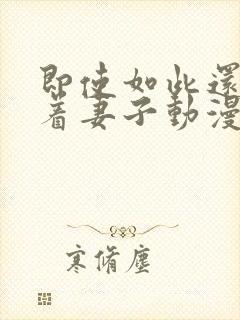 即使如此還
着妻子動漫
寒脩塵